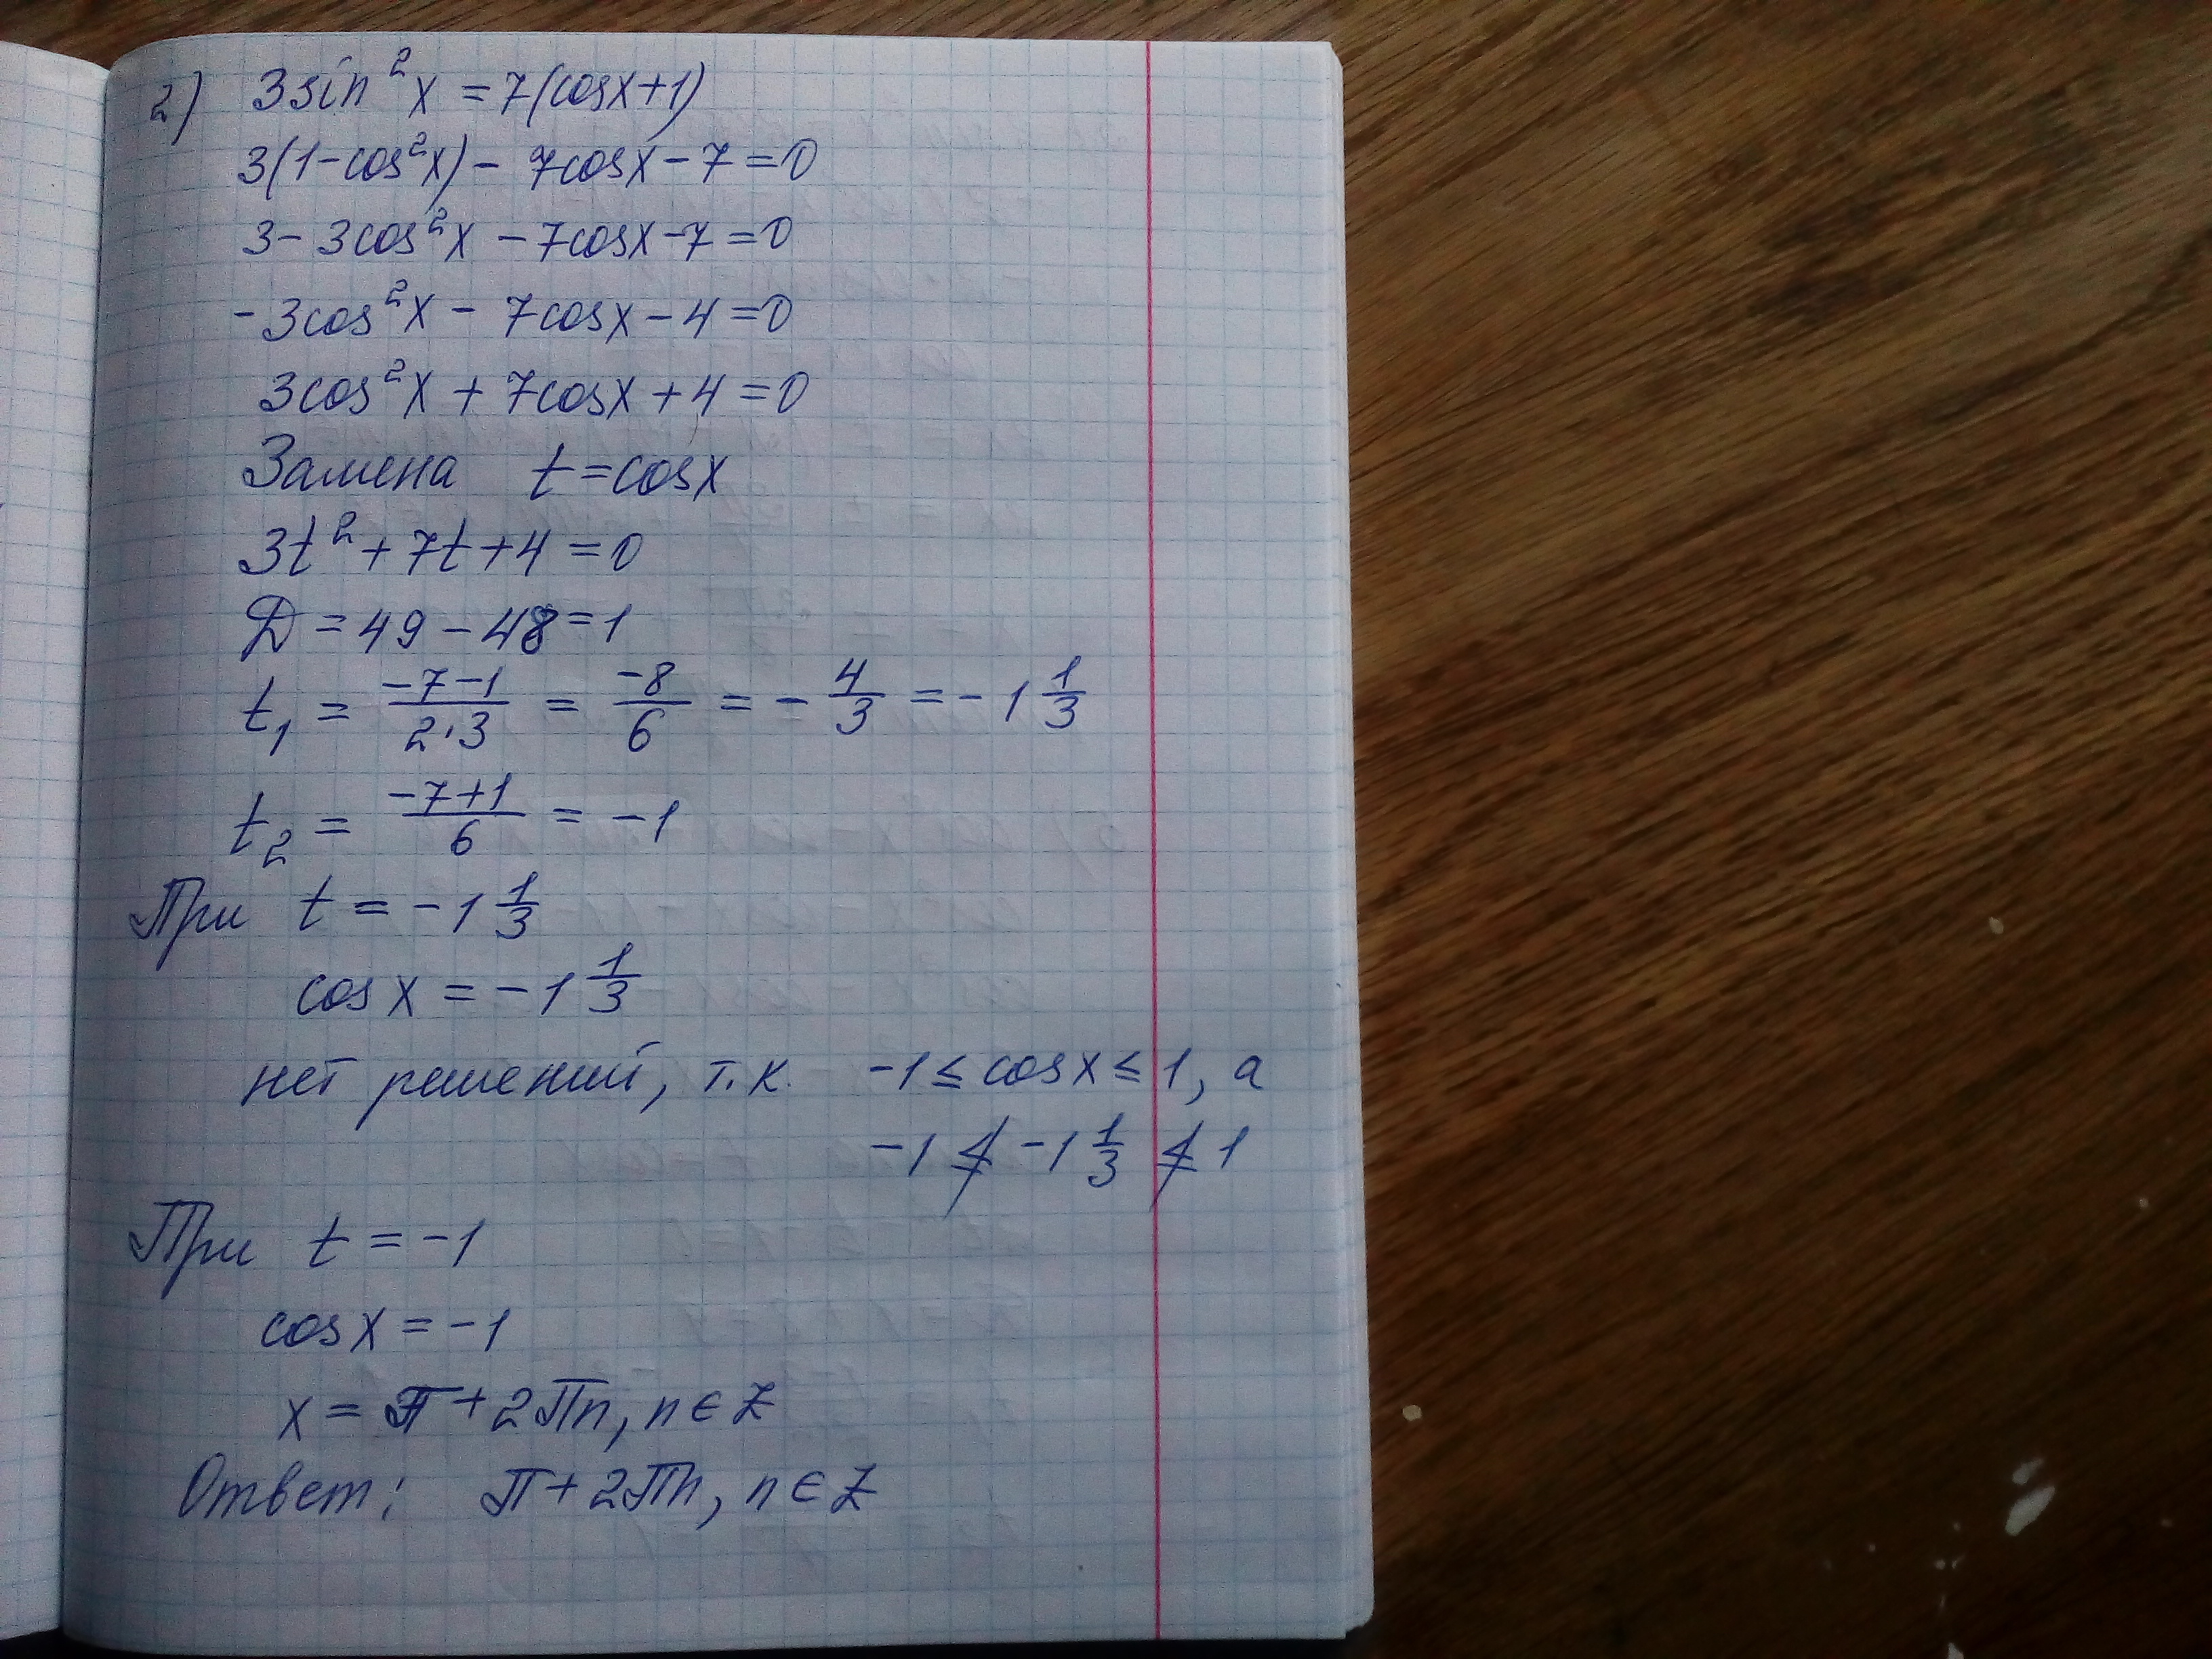 2) 3sin²x = 7(cosx+1)
3(1-cos²x) - 7cosx - 7 = 0
3 - 3cos²x - 7cosx - 7 = 0
-3cos²x - 7cosx - 4 = 0
3cos²x + 7cosx + 4 = 0
Замена t = cosx
3t² + 7t + 4 = 0
D = 49 - 48 = 1
t₁ = (-7-1)/(2·3) = -8/6 = -4/3 = -1 1/3
t₂ = (-7+1)/6 = -1
При t = -1 1/3
cosx = -1 1/3
нет решений, т.к. -1 ≤ cosx ≤ 1, а
-1 ≰ -1 1/3 ≰ 1
При t = -1
cosx = -1
x = π + 2πn, n ∈ Z
Ответ: π + 2πn, n ∈ Z